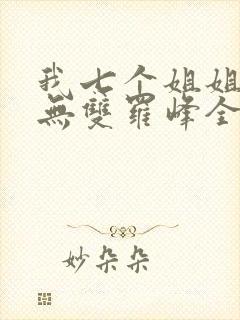 我七个姐姐
無雙羅峰全
妙朵朵